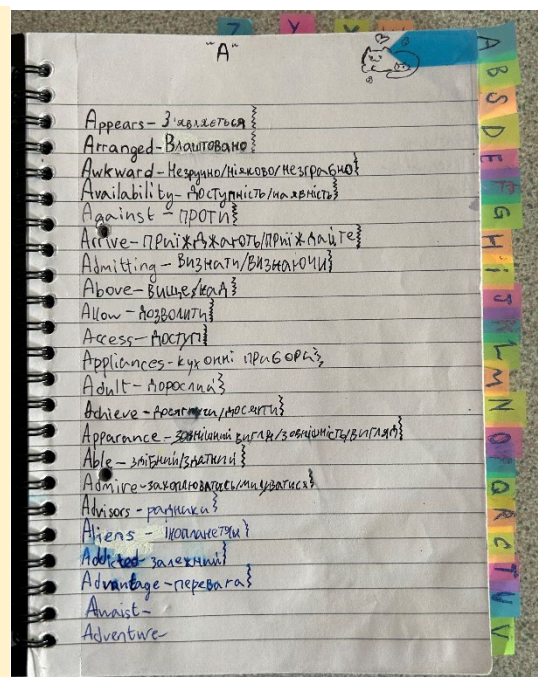 Z Y X
"A"
Appears – З'являється
Arranged – Влаштовано
Awkward – Незручно/ніяково/незграбно
Availability – доступність/наявність
Against – проти
Arrive – приїжджають/приїждайте
Admitting – Визнати/визнаючи
Above – вище/над
Allow – дозволити
Access – доступ
Appliances – кухонні прибори
Adult – дорослий
Achieve –
Apparance – зовнішний вигляд/зовнішність/вигляд
Able – здібний/здатний
Admire – захоплюватись/милуватися
Advisors – радники
Aliens – інопланетяни
Addicted – залежний
Advantage – перевага
Adventure –
A
B
S
D
E
G
H
i
J
L
M
N
O
Q
R
C
T
U
V